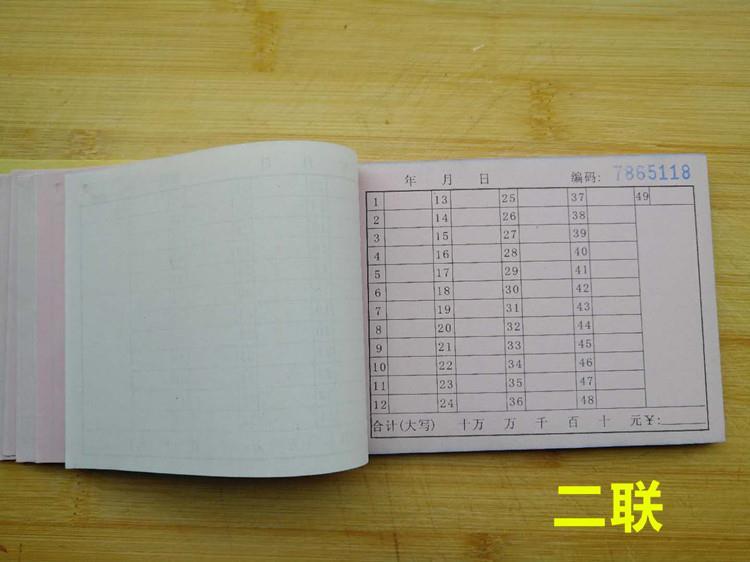 年 月 日 编码: 7865118
1 13 25 37 49
2 14 26 38
3 15 27 39
4 16 28 40
5 17 29 41
6 18 30 42
7 19 31 43
8 20 32 44
9 21 33 45
10 22 34 46
11 23 35 47
12 24 36 48
合计(大写) 十万 万 千 百 十 元¥:
二联